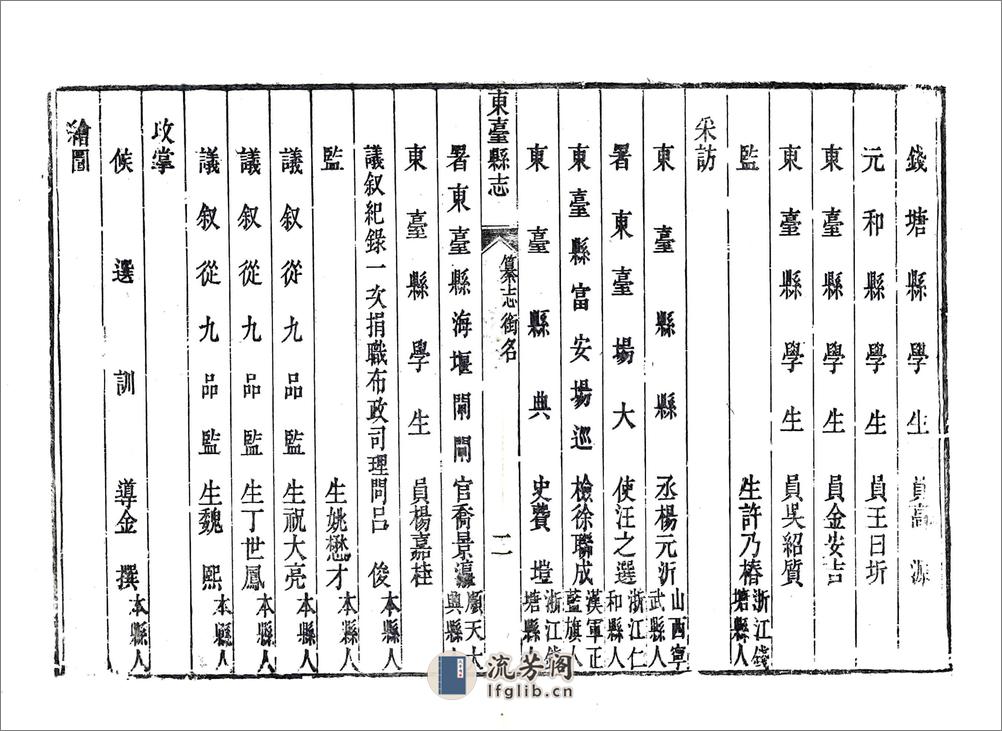 錢塘縣學生員高源
元和縣學生員王曰圻
東臺縣學生員金安吉
東臺縣學生員吳紹質
監生許乃椿浙江錢塘縣人
采訪
東臺縣縣丞楊元沂山西寧武縣人
署東臺場大使汪之選浙江仁和縣人
東臺縣富安場巡檢徐聯成漢軍正藍旗人
東臺縣典史費塏浙江錢塘縣人
東臺縣志
纂志銜名
二
署東臺縣海堰閘閘官喬景瀛順天大興縣人
東臺縣學生員楊嘉桂
議叙紀錄一次捐職布政司理問呂俊本縣人
監生姚懋才本縣人
議叙從九品監生祝大亮本縣人
議叙從九品監生丁世鳳本縣人
議叙從九品監生魏熙本縣人
攷掌
候選訓導金撰本縣人
繪圖
流芳閣
lfglib.cn